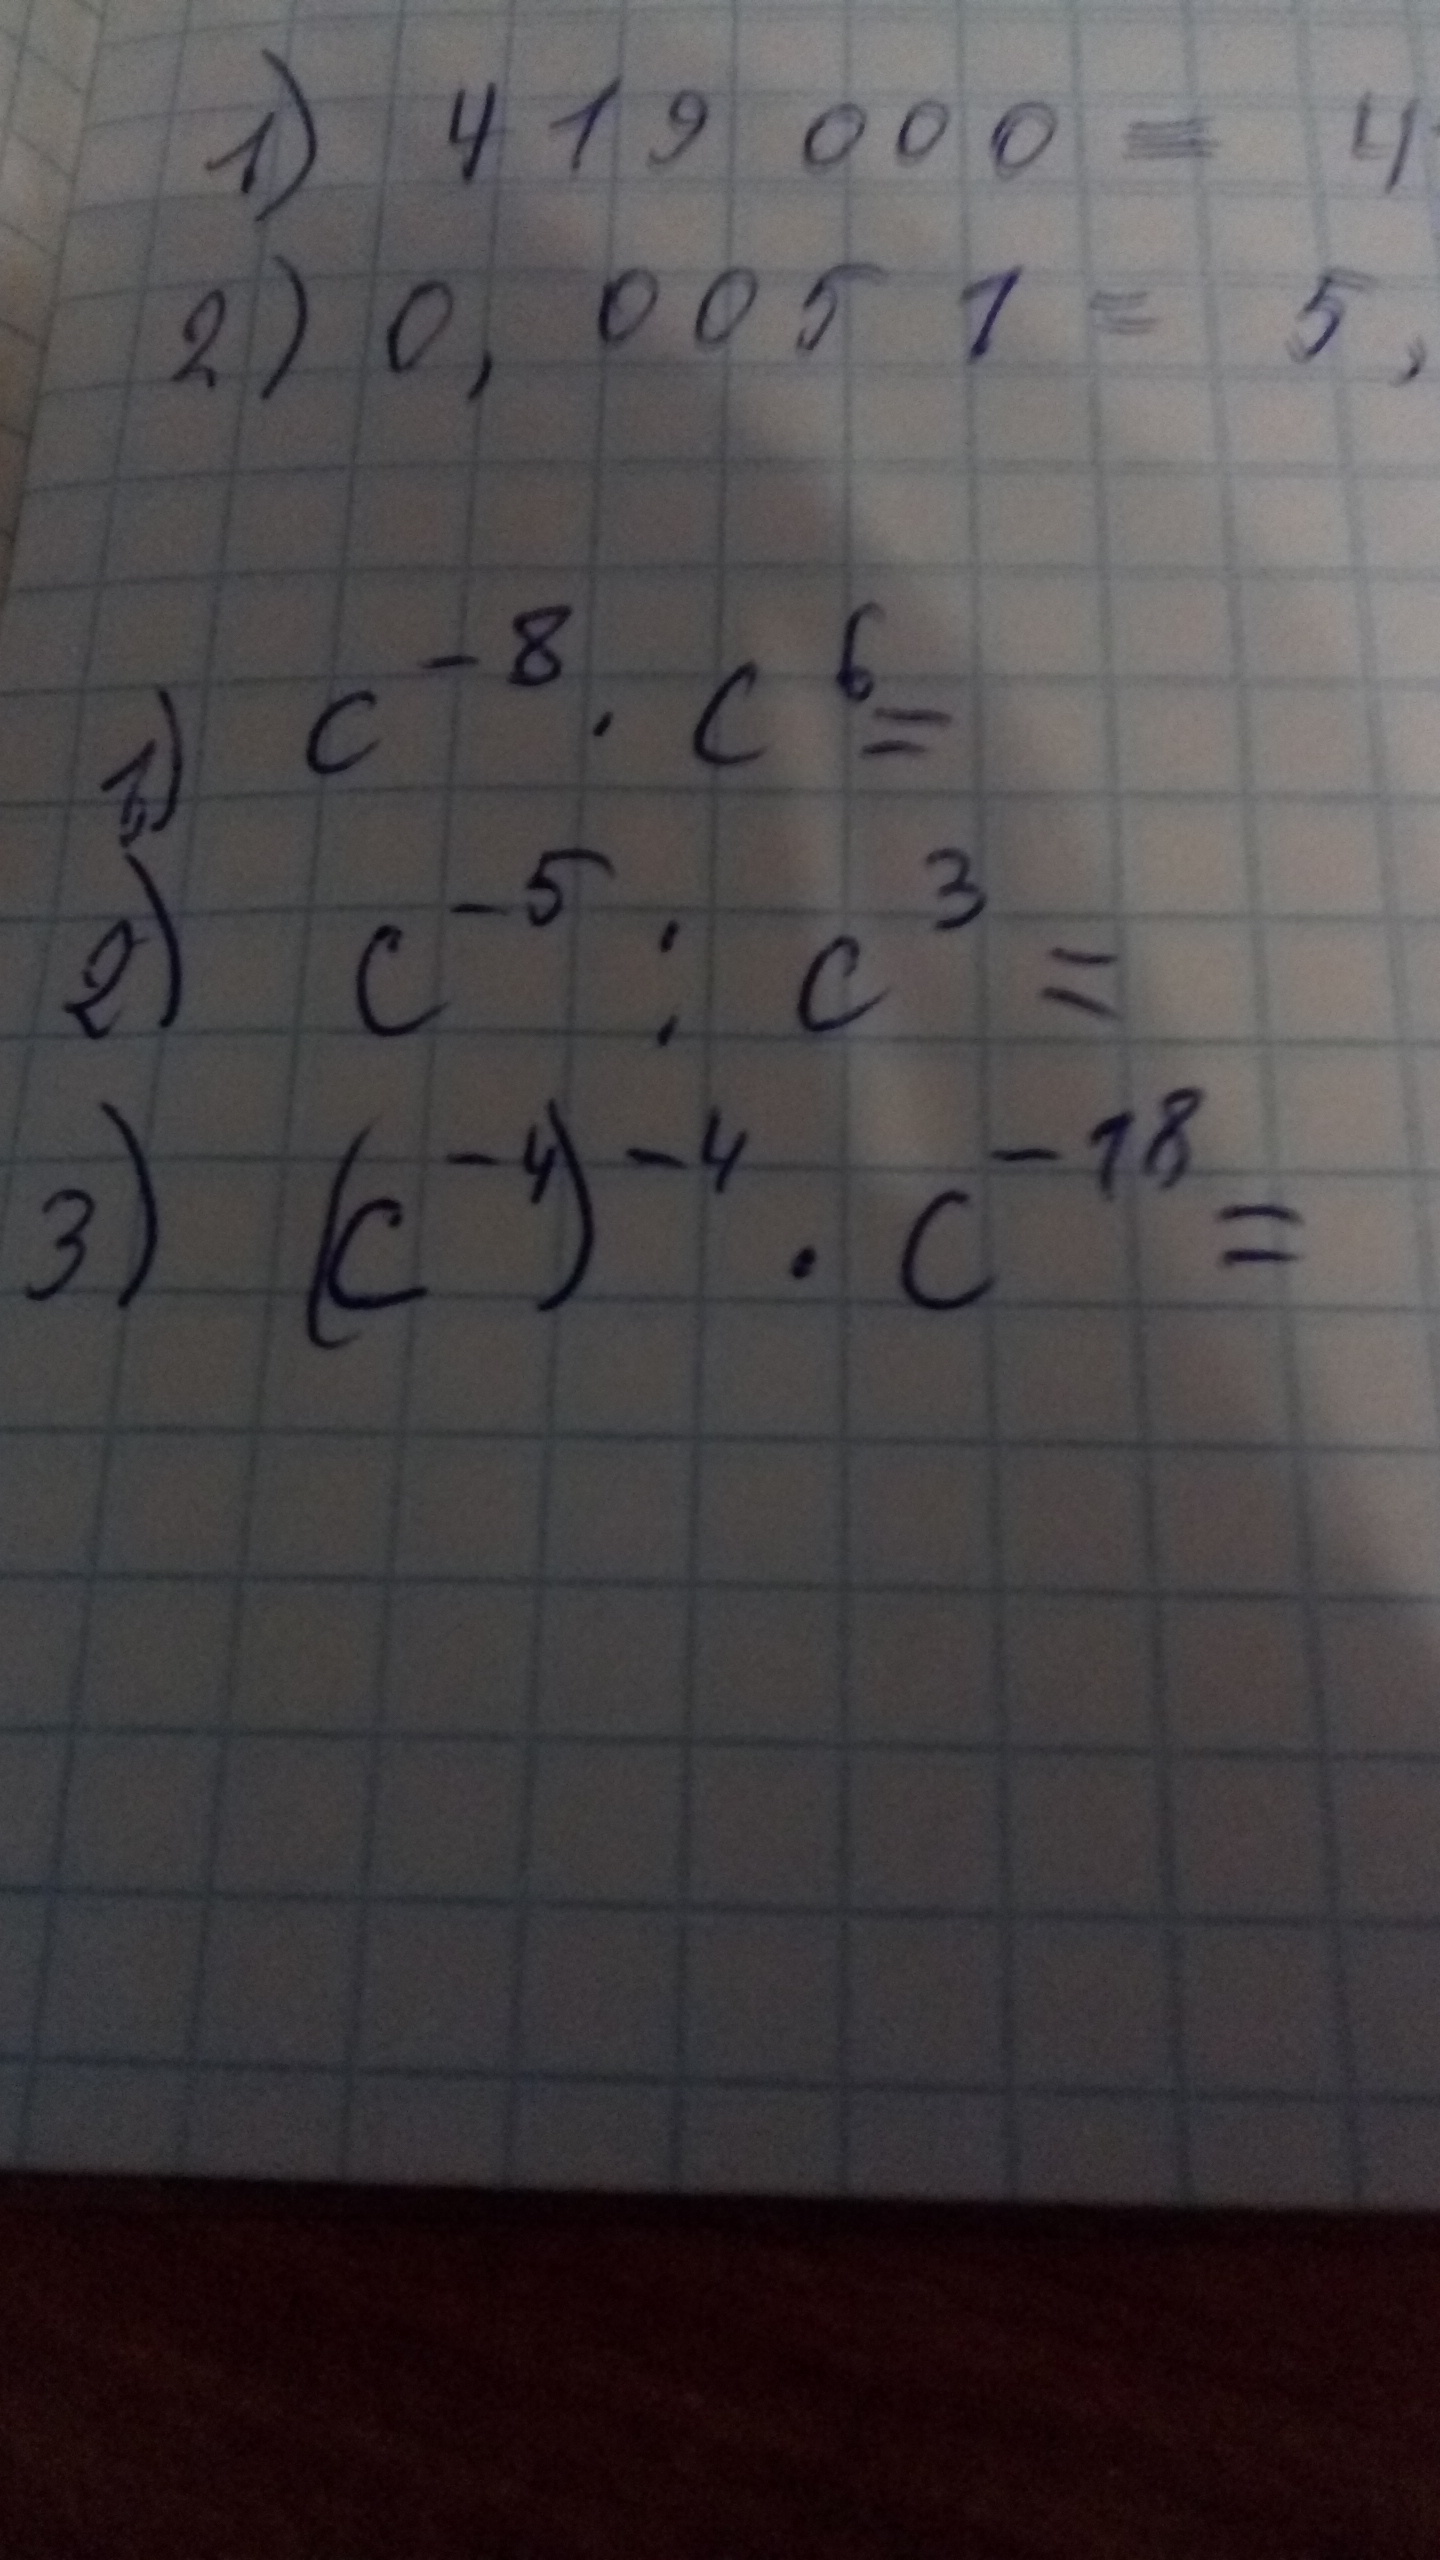 1) 419 000 = 4
2) 0,0051 = 5,
1) c⁻⁸ · c⁶ =
2) c⁻⁵ : c³ =
3) (c⁻⁴)⁻⁴ · c⁻¹⁸ =